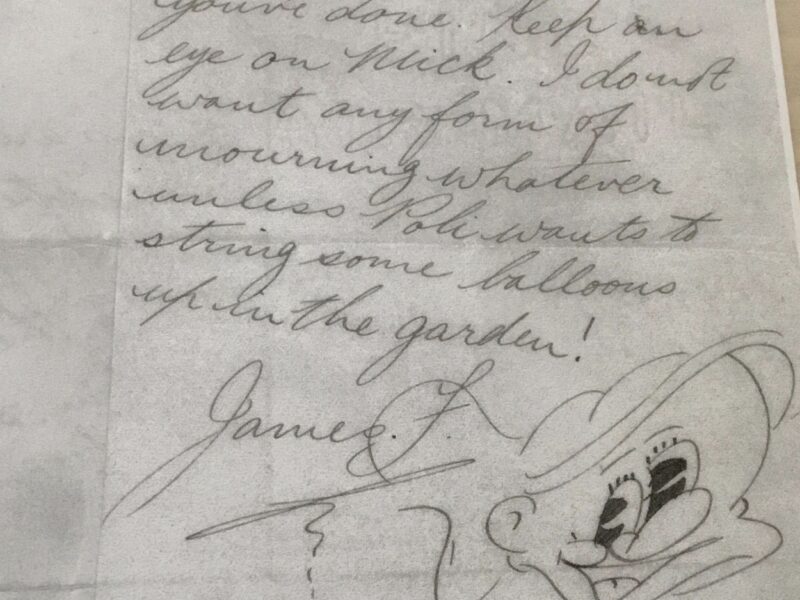 you've done. Keep an
eye on Mick. I do not
want any form of
mourning whatever
unless Poli wants to
string some balloons
up in the garden!
James. F.